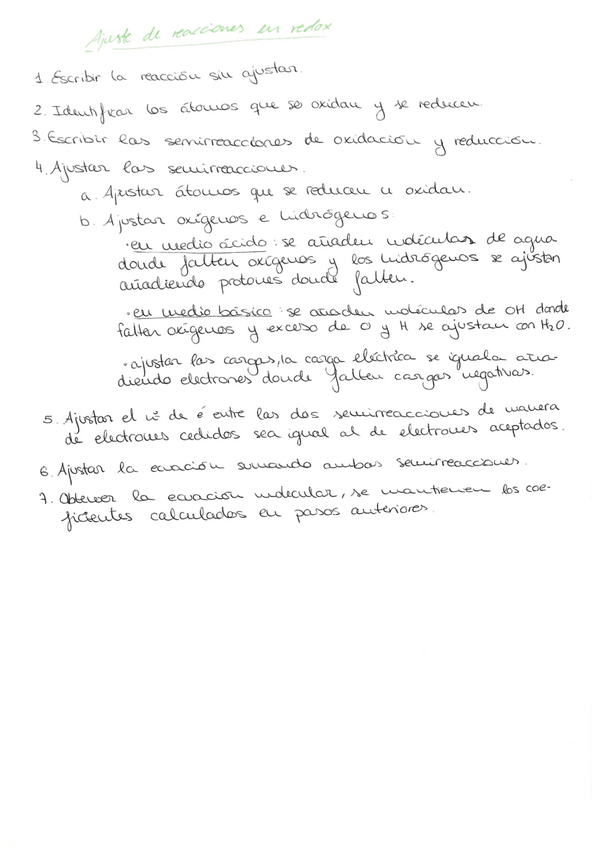 Ajuste de reacciones en redox
1 Escribir la reacción sin ajustar.
2. Identificar los átomos que se oxidan y se reducen.
3. Escribir las semirreacciones de oxidación y reducción.
4. Ajustar las semirreacciones.
a. Ajustar átomos que se reducen u oxidan.
b. Ajustar oxígenos e hidrógenos.
·en medio ácido: se añaden moléculas de agua
donde falten oxígenos y los hidrógenos se ajustan
añadiendo protones donde falten.
·en medio básico: se añaden moléculas de OH donde
falten oxígenos y exceso de O y H se ajustan con H₂O.
·ajustar las cargas, la carga eléctrica se iguala aña-
diendo electrones donde falten cargas negativas.
5. Ajustar el nº de é entre las dos semirreacciones de manera
de electrones cedidos sea igual al de electrones aceptados.
6. Ajustar la ecuación sumando ambas semirreacciones.
7. Obtener la ecuación molecular, se mantienen los coe-
ficientes calculados en pasos anteriores.